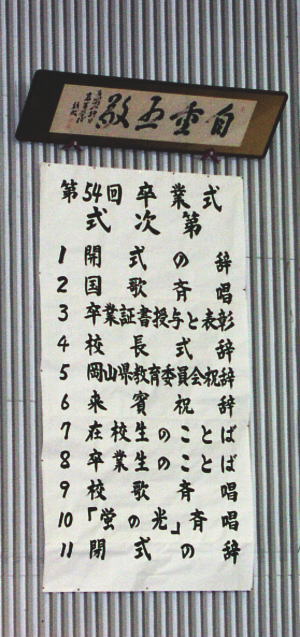 自重互敬
第54回 卒業式
式次第
1 開式の辞
2 国歌斉唱
3 卒業証書授与と表彰
4 校長式辞
5 岡山県教育委員会祝辞
6 来賓祝辞
7 在校生のことば
8 卒業生のことば
9 校歌斉唱
10 「蛍の光」斉唱
11 閉式の辞